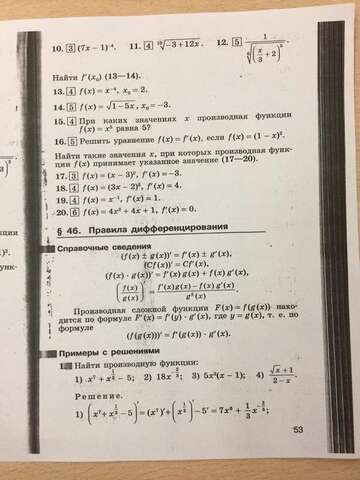 10. 3 (7x − 1)⁻⁴. 11. 4 ¹⁰√(−3 + 12x). 12. 5 1/⁶√((x/3 + 2)⁵).
Найти f′(x₀) (13—14).
13. 4 f(x) = x⁻⁴, x₀ = 2.
14. 5 f(x) = √(1 − 5x), x₀ = −3.
15. 4 При каких значениях x производная функции
f(x) = x⁵ равна 5?
16. 5 Решить уравнение f(x) = f′(x), если f(x) = (1 − x)².
Найти такие значения x, при которых производная функ-
ции f(x) принимает указанное значение (17—20).
17. 3 f(x) = (x − 3)², f′(x) = −3.
18. 4 f(x) = (3x − 2)², f′(x) = 4.
19. 4 f(x) = x⁻¹, f′(x) = 1.
20. 6 f(x) = 4x² + 4x + 1, f′(x) = 0.
§ 46. Правила дифференцирования
Справочные сведения
(f(x) ± g(x))′ = f′(x) ± g′(x),
(Cf(x))′ = Cf′(x),
(f(x) · g(x))′ = f′(x) g(x) + f(x) g′(x),
(f(x)/g(x))′ = (f′(x) g(x) − f(x) g′(x))/g²(x)
Производная сложной функции F(x) = f(g(x)) нахо-
дится по формуле F′(x) = f′(y) · g′(x), где y = g(x), т. е. по
формуле
(f(g(x)))′ = f′(g(x)) · g′(x).
Примеры с решениями
1. Найти производную функции:
1) x⁷ + x^(1/3) − 5; 2) 18x^(−2/3); 3) 5x³(x − 1); 4) √(x + 1)/(2 − x).
Решение.
1) (x⁷ + x^(1/3) − 5)′ = (x⁷)′ + (x^(1/3))′ − 5′ = 7x⁶ + 1/3 x^(−2/3);
53